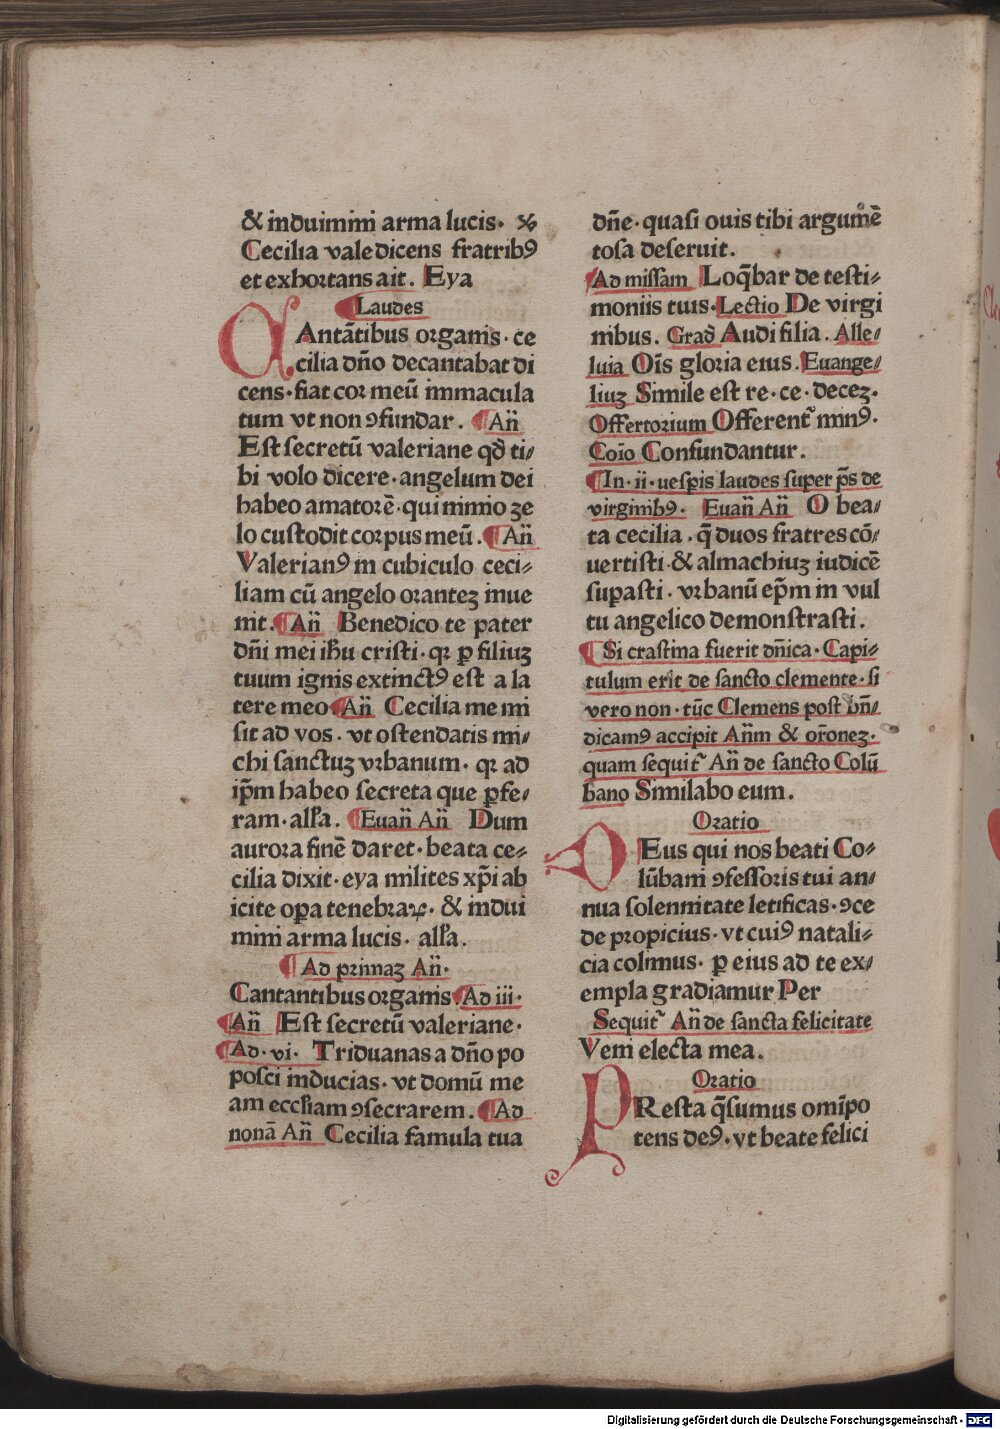 & induimini arma lucis. ℣
Cecilia valedicens fratribꝰ
et exhortans ait. Eya
Laudes
CAntātibus organis. ce
cilia dn̄o decantabat di
cens. fiat cor meū immacula
tum vt non ↄfundar. An̄
Est secretū valeriane qd̄ ti/
bi volo dicere. angelum dei
habeo amatorē. qui nimio ze
lo custodit corpus meū. An̄
Valerianꝰ in cubiculo ceci/
liam cū angelo orantez inue
nit. An̄ Benedico te pater
dn̄i mei ihu cristi. qr ꝑ filiuz
tuum ignis extinctꝰ est a la
tere meo An̄ Cecilia me mi
sit ad vos. vt ostendatis mi/
chi sanctuz vrbanum. qr ad
ip̄m habeo secreta que ꝑfe/
ram. alla. Euan̄ An̄ Dum
aurora finē daret. beata ce/
cilia dixit. eya milites xp̄i ab
icite oꝑa tenebraꝝ. & indui
mini arma lucis. alla.
Ad primaz An̄.
Cantantibus organis Ad iii.
An̄ Est secretū valeriane.
Ad. vi. Triduanas a dn̄o po
posci inducias. vt domū me
am eccliam ↄsecrarem. Ad
nonā An̄ Cecilia famula tua
dn̄e. quasi ouis tibi argumē
tosa deseruit.
Ad missam Loq̄bar de testi/
moniis tuis. Lectio De virgi
nibus. Grad̄ Audi filia. Alle/
luia Oīs gloria eius. Euange/
liuz Simile est re. ce. decez.
Offertorium Offerentᷣ minꝰ.
Coīo Confundantur.
In. ii. vesp̄is laudes super p̄s de
virginibꝰ. Euan̄ An̄ O bea/
ta cecilia. q̄ duos fratres cō/
uertisti. & almachiuz iudicē
suꝑasti. vrbanū ep̄m in vul
tu angelico demonstrasti.
Si crastina fuerit dn̄ica. Capi/
tulum erit de sancto clemente. si
vero non. tūc Clemens post bn̄/
dicamꝰ accipit An̄m & or̄onez.
quam sequitᷣ An̄ de sancto Colū
bano Similabo eum.
Oratio
DEus qui nos beati Co/
lūbani ↄfessoris tui an/
nua solennitate letificas. ↄce
de propicius. vt cuiꝰ natali/
cia colimus. ꝑ eius ad te ex/
empla gradiamur Per
Sequitᷣ An̄ de sancta felicitate
Veni electa mea.
Oratio
PResta q̄sumus omīpo
tens deꝰ. vt beate felici
Digitalisierung gefördert durch die Deutsche Forschungsgemeinschaft - DFG